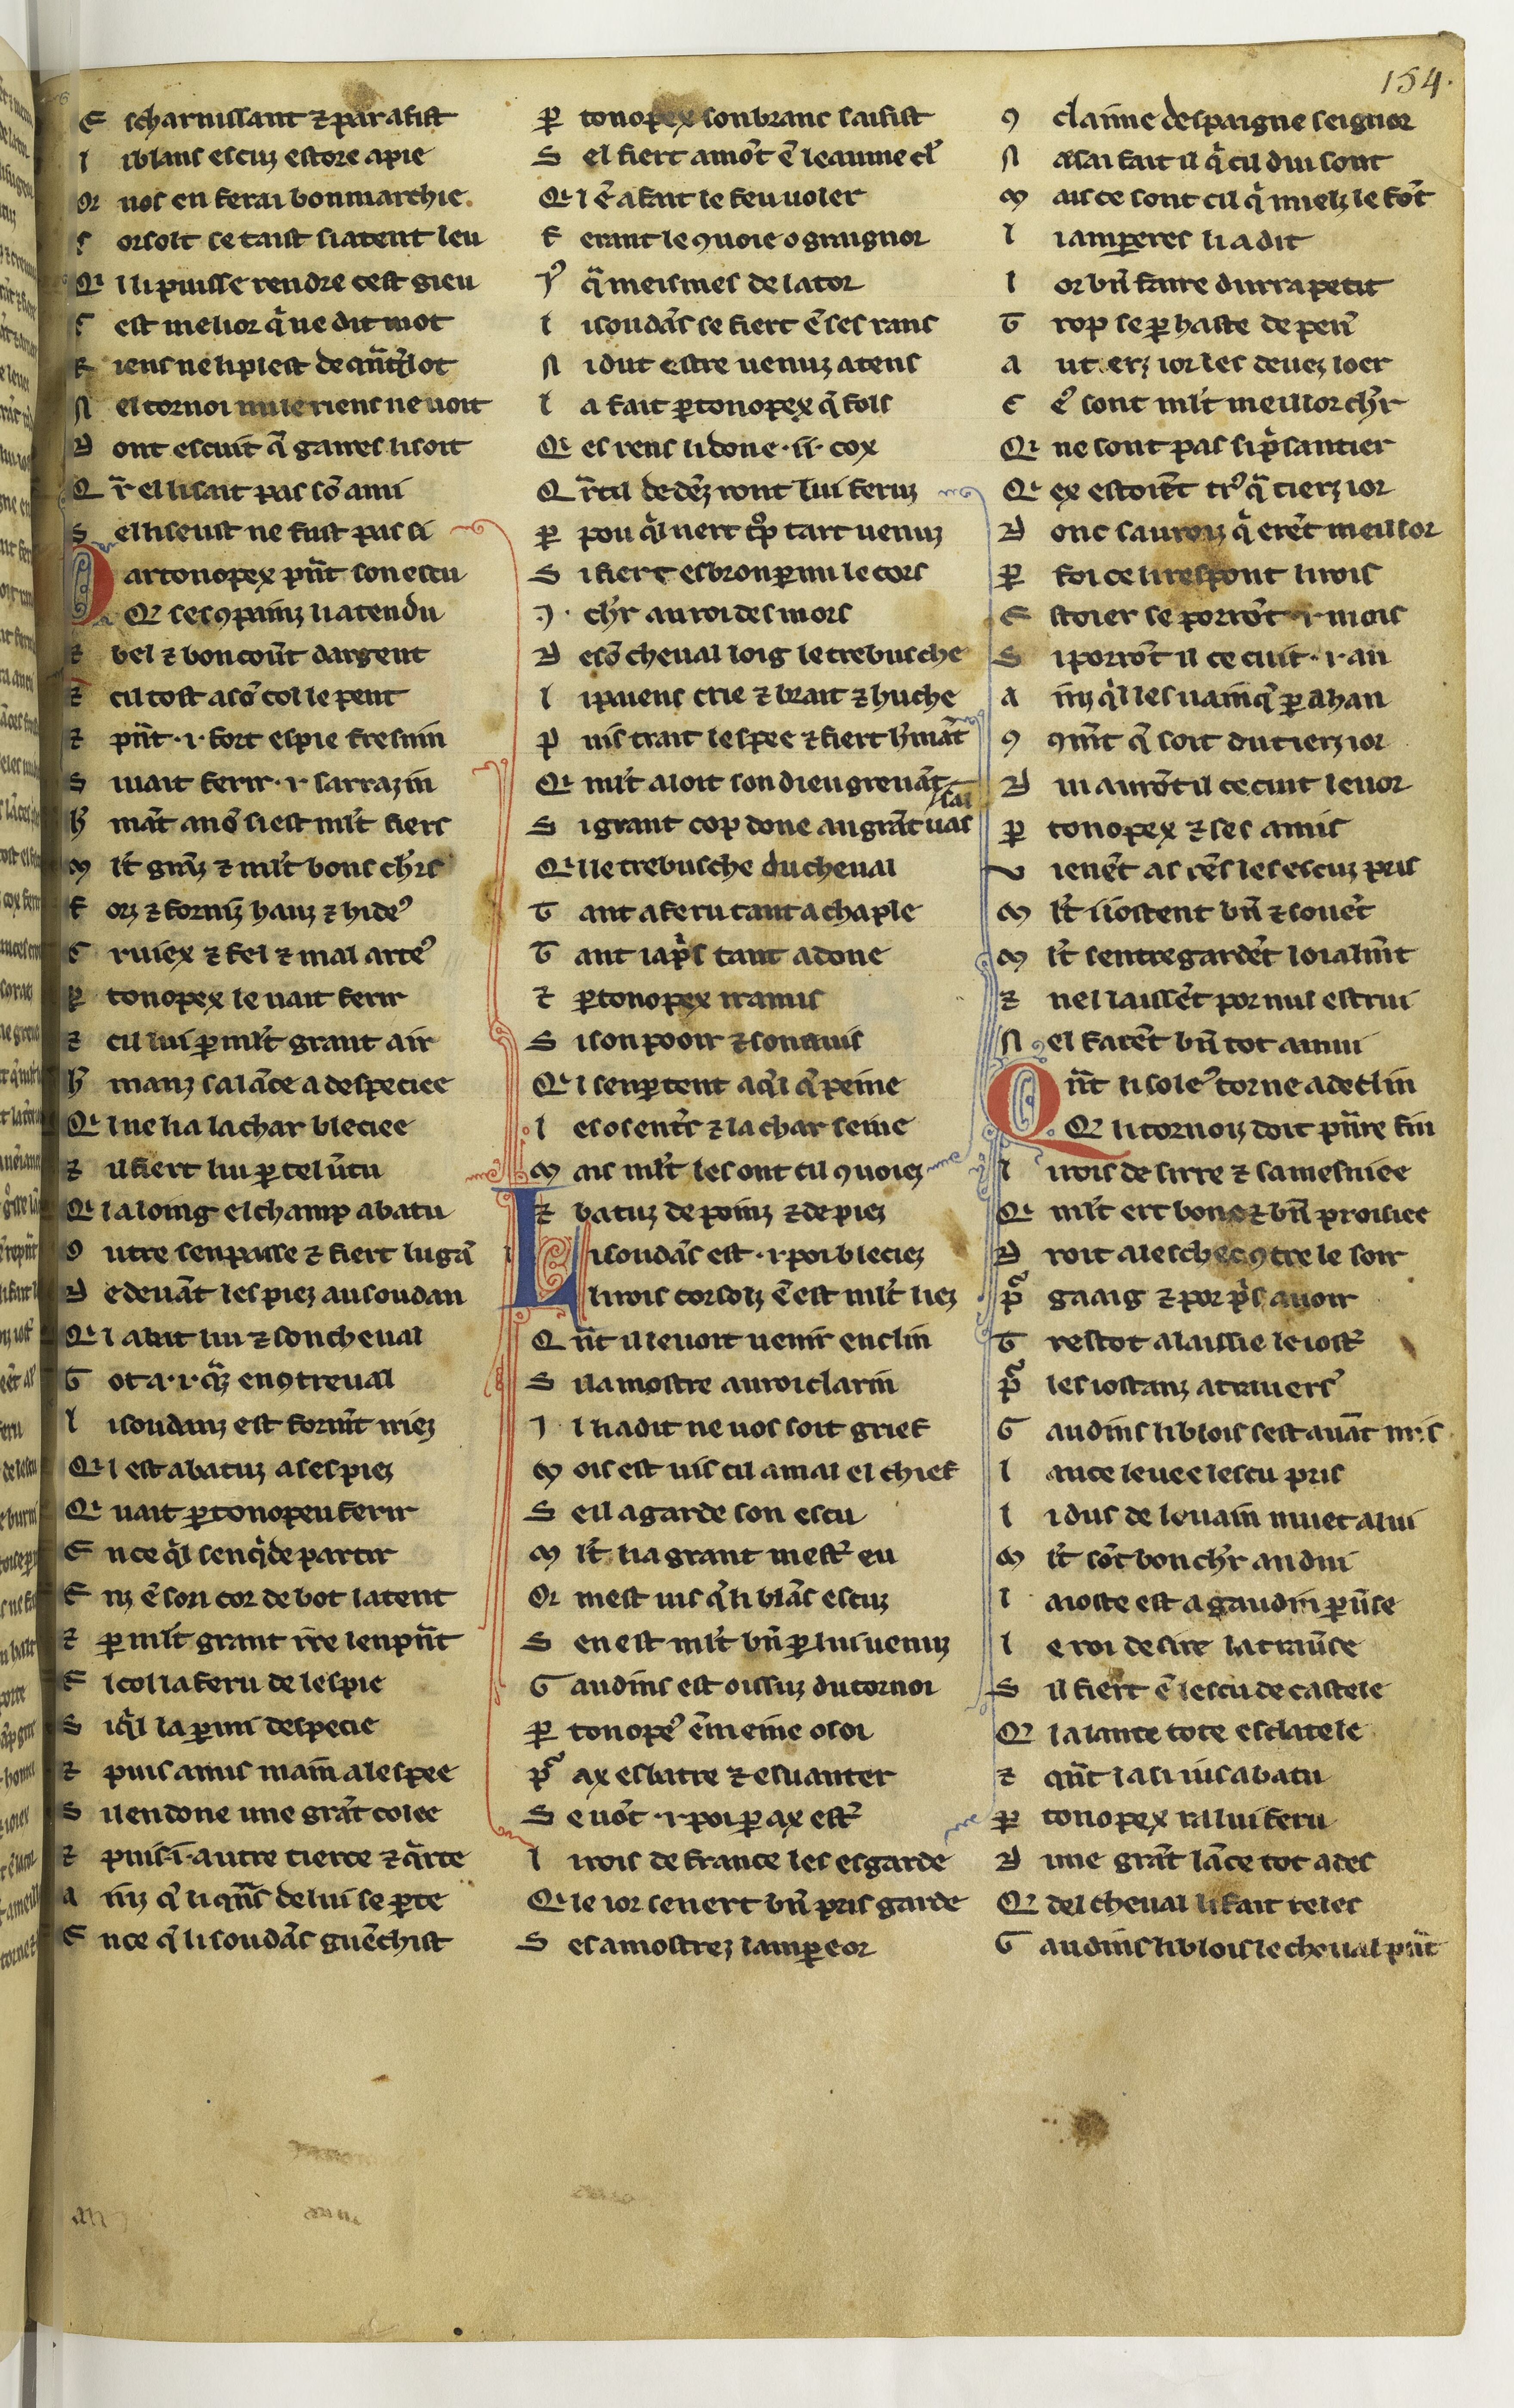 154.
E scharnissant ⁊ par afist
l iblans escuz estore apie
Or uos en ferai bonmarchie.
C orsolt se taist siatent leu
Qi l lipuisse rendre cest gieu
C est melior q̃ ne dit mot
R iens ne lipiest de q̃nt̃ q̃lot
N el tornoi nule riens ne uoit
D ont escuit q̃ gaires lisoit
Q r̃ el lisait pas sõ ami
S el liseust ne fust pas si
P artonopex pñt son escu
Q' ses ɔpainz liatendu
⁊ bel ⁊ bon couñt dargent
⁊ cil tost asõ col le pent
⁊ pñt ·i· fort espie fresnin
S iuait ferir ·i· sarrazin
h̃ mãt anõ si est ml't fiers
M l't grãz ⁊ ml't bons ch'rs
F orz ⁊ fornĩz hauz ⁊ hide⁹
C ruiex ⁊ fel ⁊ mal arte⁹
P tonopex le uait ferir
⁊ cil lui ꝑ ml't grant air
h̃ manz salãce a despeciee
Qi l ne lia la char bleciee
⁊ il fiert lui ꝑ tel ũtu
Qi l aloing el champ abatu
O utre senpasse ⁊ fiert lugã
D e deuãt les piez au soudan
Qi l abat lui ⁊ son cheual
G ot a ·i· q̃rz en ɔtreual
l isoudanz est formt̃ iriez
Qi l est abatuz a ses piez
Qi uait ꝑtonopeu ferir
E nce q̃l senq̃de partir
E nz ẽ son cor de bot latent
⁊ ꝑ ml't grant ire lenpñt
E l col la feru de lespie
S iq̃l la ꝑmi despecie
⁊ puis amis maĩ a lespee
S ilendone une grãt colee
⁊ puis ·i· autre tierce ⁊ q̃rte
A inz q̃ li q̃ns de lui se ꝑte
E nce q̃ li soudãs guẽchist
P tonopex son branc saisist
S el fiert amõt ẽ leaume cl'
Qi l ẽ a fait le feu uoler
F erant le ɔuoie o graignor
T⁹ q̃ meismes de lator
l isoudãs se fiert ẽ ses rans
N idut estre uenuz atens
l a fait ꝑtonopex q̃ fols
Qi es rens li done ·ii· cox
Q r̃ cil de dẽz ront lui feruz
P pou q̃l nert tᵒp tart uenuz
S i fiert esbron ꝑmi le cors
·J· ch'r au roi des mors
D esõ cheual loig le trebusche
l ipaiens crie ⁊ brait ⁊ huche
P uis trait lespee ⁊ fiert h̃mãt
Qi ml't aloit son dieu greuãt
S i grant cop done au grãt uassal
Qi l le trebusche du cheual
T ant a feru tant a chaple
T ant iap's tant a done
⁊ ꝑtonopex iramis
S i son pooir ⁊ son auis
Qi l senꝑtent aq̃l q̃ peine
l es os entrs ⁊ la char seine
M ais ml't les ont cil ɔuoiez
⁊ batuz de poinz ⁊ de piez
L isoudãs est ·i· poi bleciez
Lirois corsolz ẽ est ml't liez
Q ñt il le uoit uenir enclin
S ila mostre au roi clarin
J l li a dit ne uos soit grief
M ois est uis cil a mal el chief
S eil a garde son escu
M l't lia grant mest' eu
Or mest uis q̃ li blãs escuz
S en est ml't bñ ꝑ lui uenuz
G audins est oissuz du tornoi
P tonope⁹ ẽmeine o soi
P̃ ax esbatre ⁊ esuanter
S e uõt ·i· poi ꝑ ax est'
l irois de france les esgarde
Qi le ior senert bñ pris garde
S es a mostrez lampeor
ɔ claime despaigne seignor
N asai fait il q̃ cil dui sont
M ais ce sont cil q̃ mielz le fõt
l iamꝑeres li a dit
l or bñ faire durra petit
T rop se ꝑ haste de peñ
A ut. erz ior les deuez loer
C e⁹ sont ml't meillor ch'r
Qi ne sont pas si p̃santier
Qi ex estoiẽt tr⁹ q̃ tierz ior
D onc sauroiz q̃ erẽt meillor
P foi ce li respont li rois
E stoier se porrõt ·i· mois
S i porrõt il ce cuit ·i· an
A inz q̃l les uainq̃ ꝑ ahan
ɔ ɔmt̃ q̃ soit du tierz ior
D ui aurõt il ce cuit lenor
P tonopex ⁊ ses amis
V ienẽt as rẽs les escuz pris
M l't iiostent bñ ⁊ souẽt
M l't sentregardẽt loialmt̃
⁊ nel laissẽt por nus estrui
N el facẽt bñ tot amui
Q ñt li sole⁹ torne a declin
Q' li tornoiz doit p̃ñre fin
l irois de sirre ⁊ sa mesniee
Qi ml't ert bone ⁊ bñ proisiee
D roit a lesches ɔtre le soir
P̃ gaaig ⁊ por p's auoir
T restot alaissie le iost'
P̃ les iostanz atuuers⁹
G audins li blois sest auãt mis
l ance leuee lescu pris
l i dus de louain muet a lui
M l't sõt bon ch'r andui
l aioste est a gaudin ꝑuse
l e roi de sire la trause
S il fiert ẽ lescu de castele
Q' la lance tote esclatele
⁊ qñt la si ius abatu
P tonopex ra lui feru
D une grãt lãce tot ades
Q' del cheual li fait reles
G audins li blois le cheual pñt